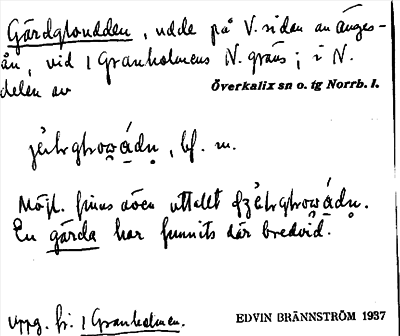 Gärdgloudden, udde på V. sidan av änges-
ån, vid 1 Granholmens N. gräns; i N.
delen av
Överkalix sn o. tg Norrb. l.
bf. m.
Möjl. finns även uttalet
En gärda har funnits där bredvid.
Uppg. fr. 1 Granholmen.
EDVIN BRÄNNSTRÖM 1937